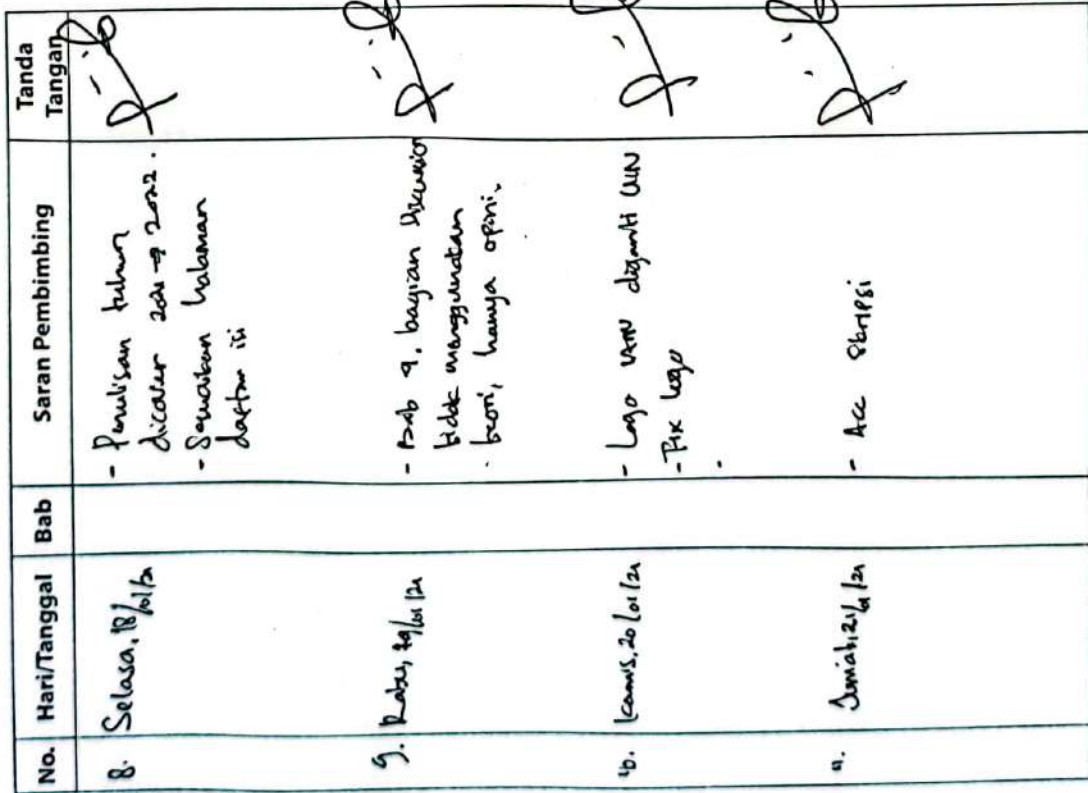 No. Hari/Tanggal Bab Saran Pembimbing Tanda Tangan
8. Selasa, 18/01/21
- Penulisan tahun
dicover 2021 → 2022.
- Sesuaikan halaman
daftar isi
9. Rabu, 19/01/21
- Bab 4, bagian discussion
tidak menggunakan
teori, hanya opini.
10. Kamis, 20/01/21
- Logo diganti UIN
- Fix logo
11. Jumiah, 21/01/21
- Acc Skripsi